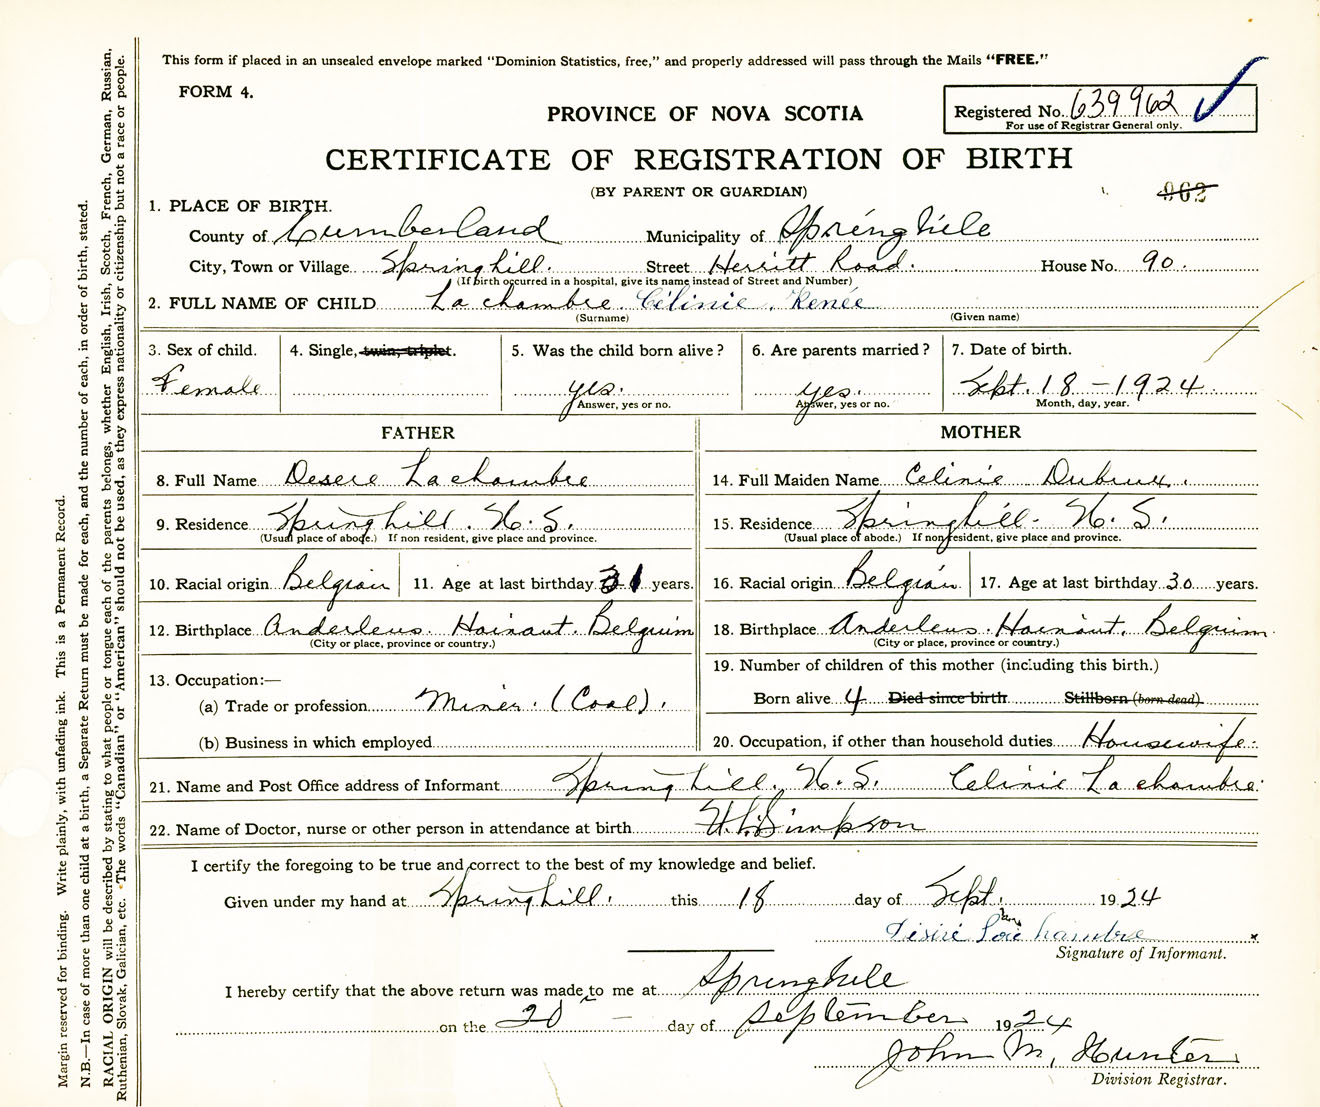 This form if placed in an unsealed envelope marked "Dominion Statistics, free," and properly addressed will pass through the Mails "FREE."
FORM 4.
PROVINCE OF NOVA SCOTIA
Registered No. 639962
For use of Registrar General only.
CERTIFICATE OF REGISTRATION OF BIRTH
(BY PARENT OR GUARDIAN)
962
1. PLACE OF BIRTH.
County of Cumberland Municipality of Springhill
City, Town or Village Springhill. Street Herritt Road. House No. 90.
(If birth occurred in a hospital, give its name instead of Street and Number)
2. FULL NAME OF CHILD Lachambre Célinie, Renée
(Surname) (Given name)
3. Sex of child. 4. Single, twin, triplet. 5. Was the child born alive? 6. Are parents married? 7. Date of birth.
Female yes. yes. Sept. 18 - 1924
Answer, yes or no. Answer, yes or no. Month, day, year.
FATHER MOTHER
8. Full Name Desere Lachambre 14. Full Maiden Name Celinie
9. Residence Springhill. N. S. 15. Residence Springhill. N. S.
(Usual place of abode.) If non resident, give place and province. (Usual place of abode.) If non resident, give place and province.
10. Racial origin Belgian 11. Age at last birthday 31 years. 16. Racial origin Belgian 17. Age at last birthday 30 years.
12. Birthplace Anderleus. Hainaut. Belguim 18. Birthplace Anderleus. Hainaut. Belguim.
(City or place, province or country.) (City or place, province or country.)
13. Occupation:— 19. Number of children of this mother (including this birth.)
(a) Trade or profession Miner. (Coal). Born alive 4 Died since birth Stillborn (born dead)
(b) Business in which employed 20. Occupation, if other than household duties Housewife.
21. Name and Post Office address of Informant Springhill. N. S. Celinie Lachambre.
22. Name of Doctor, nurse or other person in attendance at birth Simpson
I certify the foregoing to be true and correct to the best of my knowledge and belief.
Given under my hand at Springhill. this 18 day of Sept. 1924
Signature of Informant.
I hereby certify that the above return was made to me at Springhill
on the 20 day of September 1924
John M. Hunter
Division Registrar.
Margin reserved for binding. Write plainly, with unfading ink. This is a Permanent Record.
N.B.—In case of more than one child at a birth, a Separate Return must be made for each, and the number of each, in order of birth, stated.
RACIAL ORIGIN will be described by stating to what people or tongue each of the parents belongs, whether English, Irish, Scotch, French, German, Russian,
Ruthenian, Slovak, Galician, etc. The words "Canadian" or "American" should not be used, as they express nationality or citizenship but not a race or people.